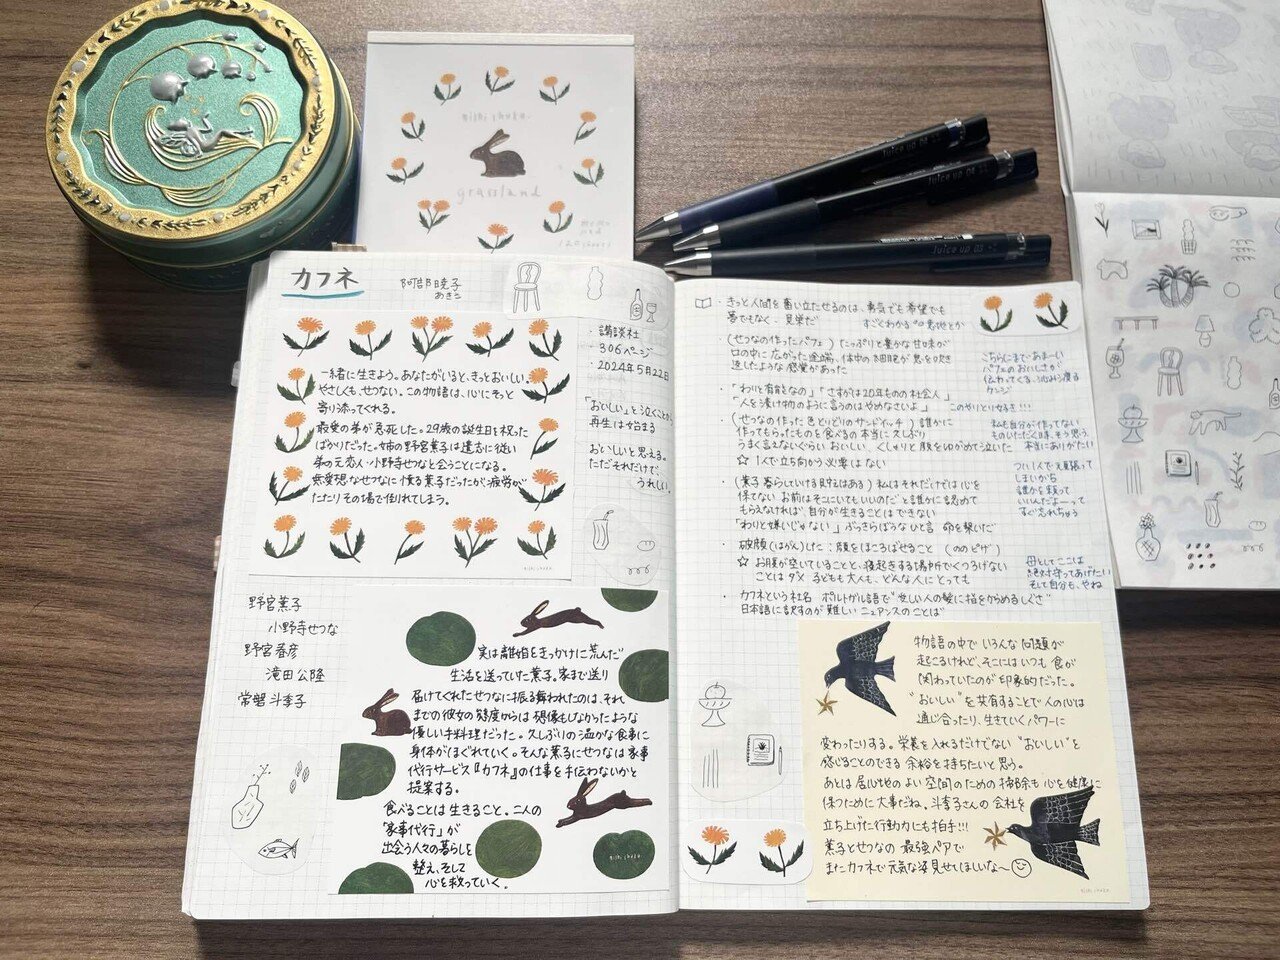 nishi shuku.
grassland
Juice up 04
Juice up 03
カフネ
阿部暁子
あきこ
・講談社
・306ページ
・2024年5月22日
「おいしい」と泣くことから
再生は始まる
おいしいと思える。
ただそれだけで、
うれしい。
一緒に生きよう。あなたがいると、きっとおいしい。
やさしくも、せつない。この物語は、心にそっと
寄り添ってくれる。
最愛の弟が急死した。29歳の誕生日を祝った
ばかりだった。姉の野宮薫子は遺言に従い
弟の元恋人・小野寺せつなと会うことになる。
無愛想なせつなに憤る薫子だったが、疲労が
たたりその場で倒れてしまう。
nishi shuku.
野宮薫子
小野寺せつな
野宮春彦
滝田公隆
常盤斗季子
実は離婚をきっかけに荒んだ
生活を送っていた薫子。家まで送り
届けてくれたせつなに振る舞われたのは、それ
までの彼女の態度からは想像もしなかったような
優しい手料理だった。久しぶりの温かな食事に
身体がほぐれていく。そんな薫子にせつなは家事
代行サービス『カフネ』の仕事を手伝わないかと
提案する。
食べることは生きること。二人の
「家事代行」が
出会う人々の暮らしを
整え、そして
心を救っていく。
nishi shuku.
・きっと人間を奮い立たせるのは、勇気でも希望でも
夢でもなく、見栄だ
すごくわかる 意地とか
・(せつなの作ったパフェ) たっぷりと豊かな甘味が
口の中に広がった途端、体中の細胞が息を吹き
返したような感覚があった
こちらにまであまーい
パフェのおいしさが
伝わってくる、沁み渡る
カンジ
・「わりと有能なの」「さすがは20年ものの社会人」
「人を漬け物のように言うのはやめなさいよ」
このやりとり好き!!!
・(せつなの作った色とりどりのサンドイッチ) 誰かに
作ってもらったものを食べるの本当に久しぶり
うまく言えないぐらいおいしい、くしゃりと顔をゆがめて泣いた
私も自分が作ってない
ものいただく時、そう思う。
本当にありがたい
☆ 1人で立ち向かう必要はない
つい1人で頑張って
しまいがち
誰かを頼って
いいんだよーって
すぐ忘れちゃう
・(薫子 暮らしていける財はある) 私はそれだけでは心を
保てない お前はそこにいてもいいのだと誰かに認めて
もらえなければ、自分が生きることはできない
「わりと嫌いじゃない」ぶっきらぼうなひと言 命を繋いだ
・破顔(はがん)した：顔をほころばせること (ののピザ)
☆ お腹が空いていることと、寝起きする場所でくつろげない
ことはダメ 子どもも大人も、どんな人にとっても
母としてここは
絶対守ってあげたい
そして自分も、やね
・カフネという社名 ポルトガル語で"愛しい人の髪に指をからめるしぐさ"
日本語に訳すのが難しいニュアンスのことば
物語の中でいろんな問題が
起こるけれど、そこにはいつも食が
関わっていたのが印象的だった。
"おいしい"を共有することで人の心は
通じ合ったり、生きていくパワーに
変わったりする。栄養を入れるだけでない"おいしい"を
感じることのできる余裕を持ちたいと思う。
あとは居心地のよい空間のための掃除も心を健康に
保つために大事だね。斗季子さんの会社を
立ち上げた行動力にも拍手!!!
薫子とせつなの最強ペアで
またカフネで元気な姿見せてほしいな〜
nishi shuku.